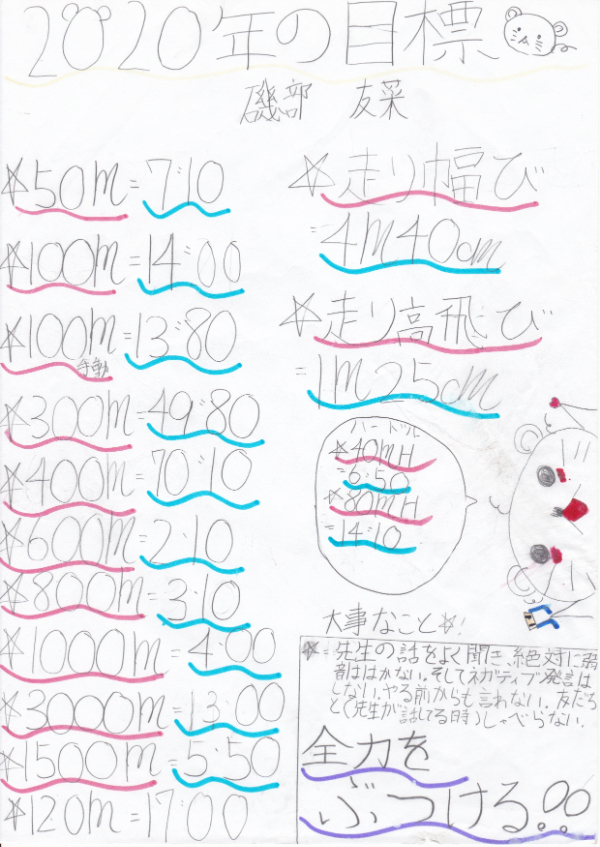 2020年の目標
磯部 友菜
☆50m=7"10
☆100m=14"00
☆100m=13"80
手動
☆300m=49"80
☆400m=70"10
☆600m=2"10
☆800m=3"10
☆1000m=4"00
☆3000m=13"00
☆1500m=5"50
☆120m=17"00
☆走り幅び
=4m40cm
☆走り高飛び
=1m25cm
ハードル
☆40mH
=6"50
☆80mH
=14"10
大事なこと☆!
☆先生の話をよく聞き、絶対に弱
音ははかない。そしてネガティブ発言は
しない。やる前からも言わない。友だち
と(先生が話してる時)しゃべらない。
全力を
ぶつける!!